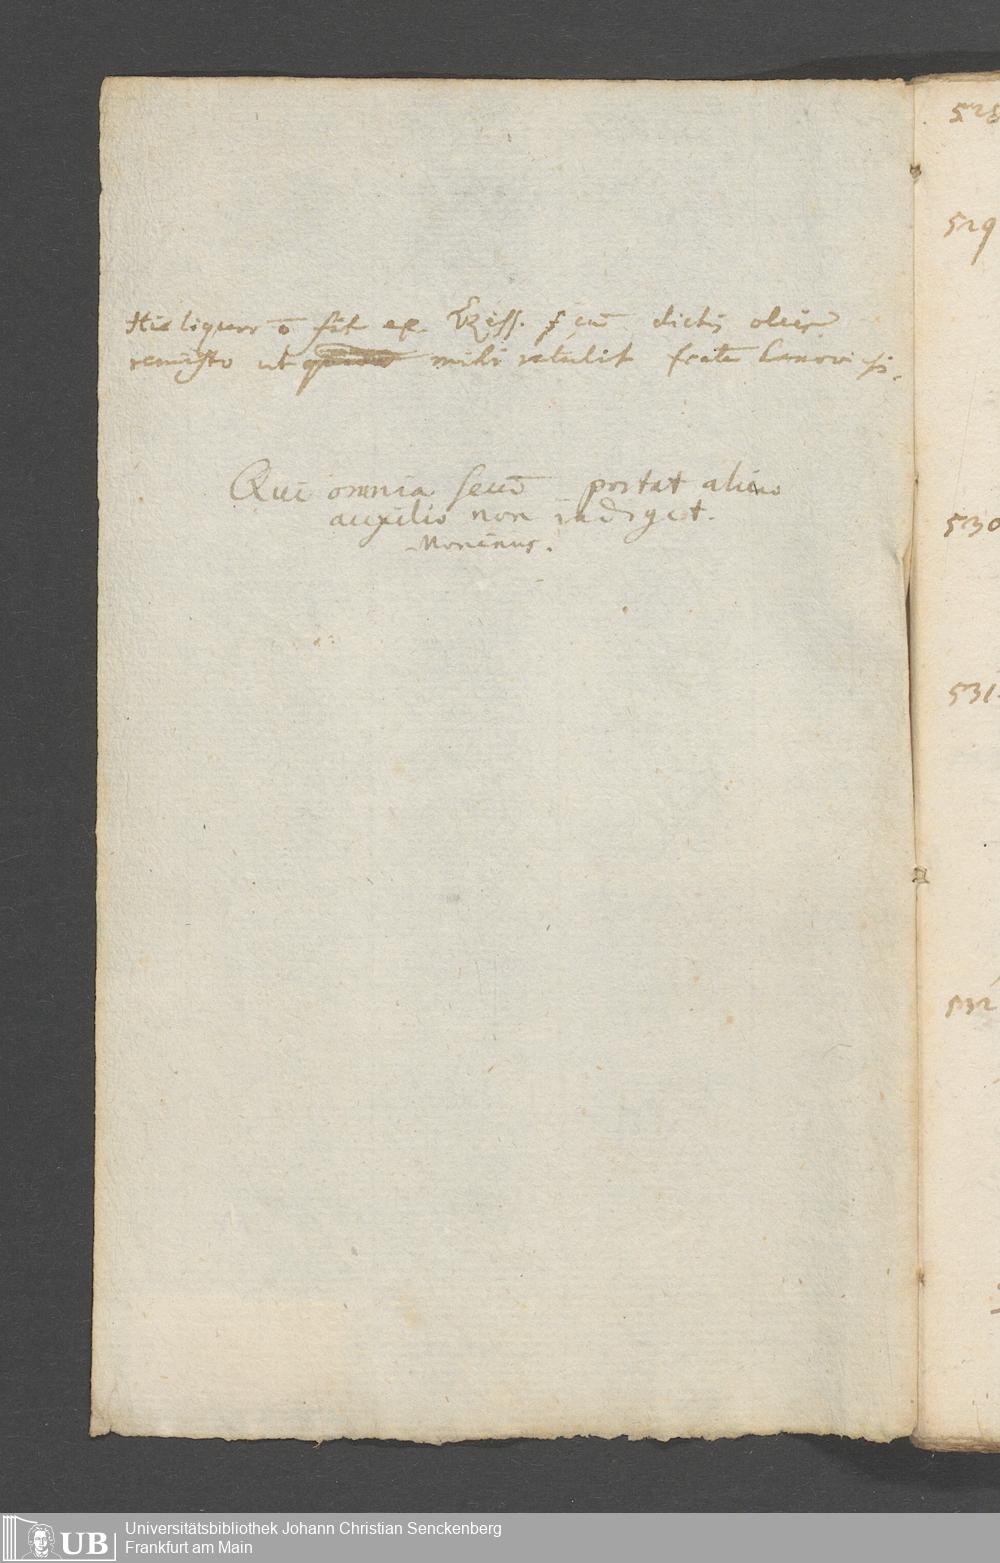 Hic liquor ō fit ex. cū dictis oleis
remisto ut mihi retulit frater
Qui omnia secū portat alieno
auxilio non indiget.
Moncinus.
528
529
530
531
532
UB
Universitätsbibliothek Johann Christian Senckenberg
Frankfurt am Main